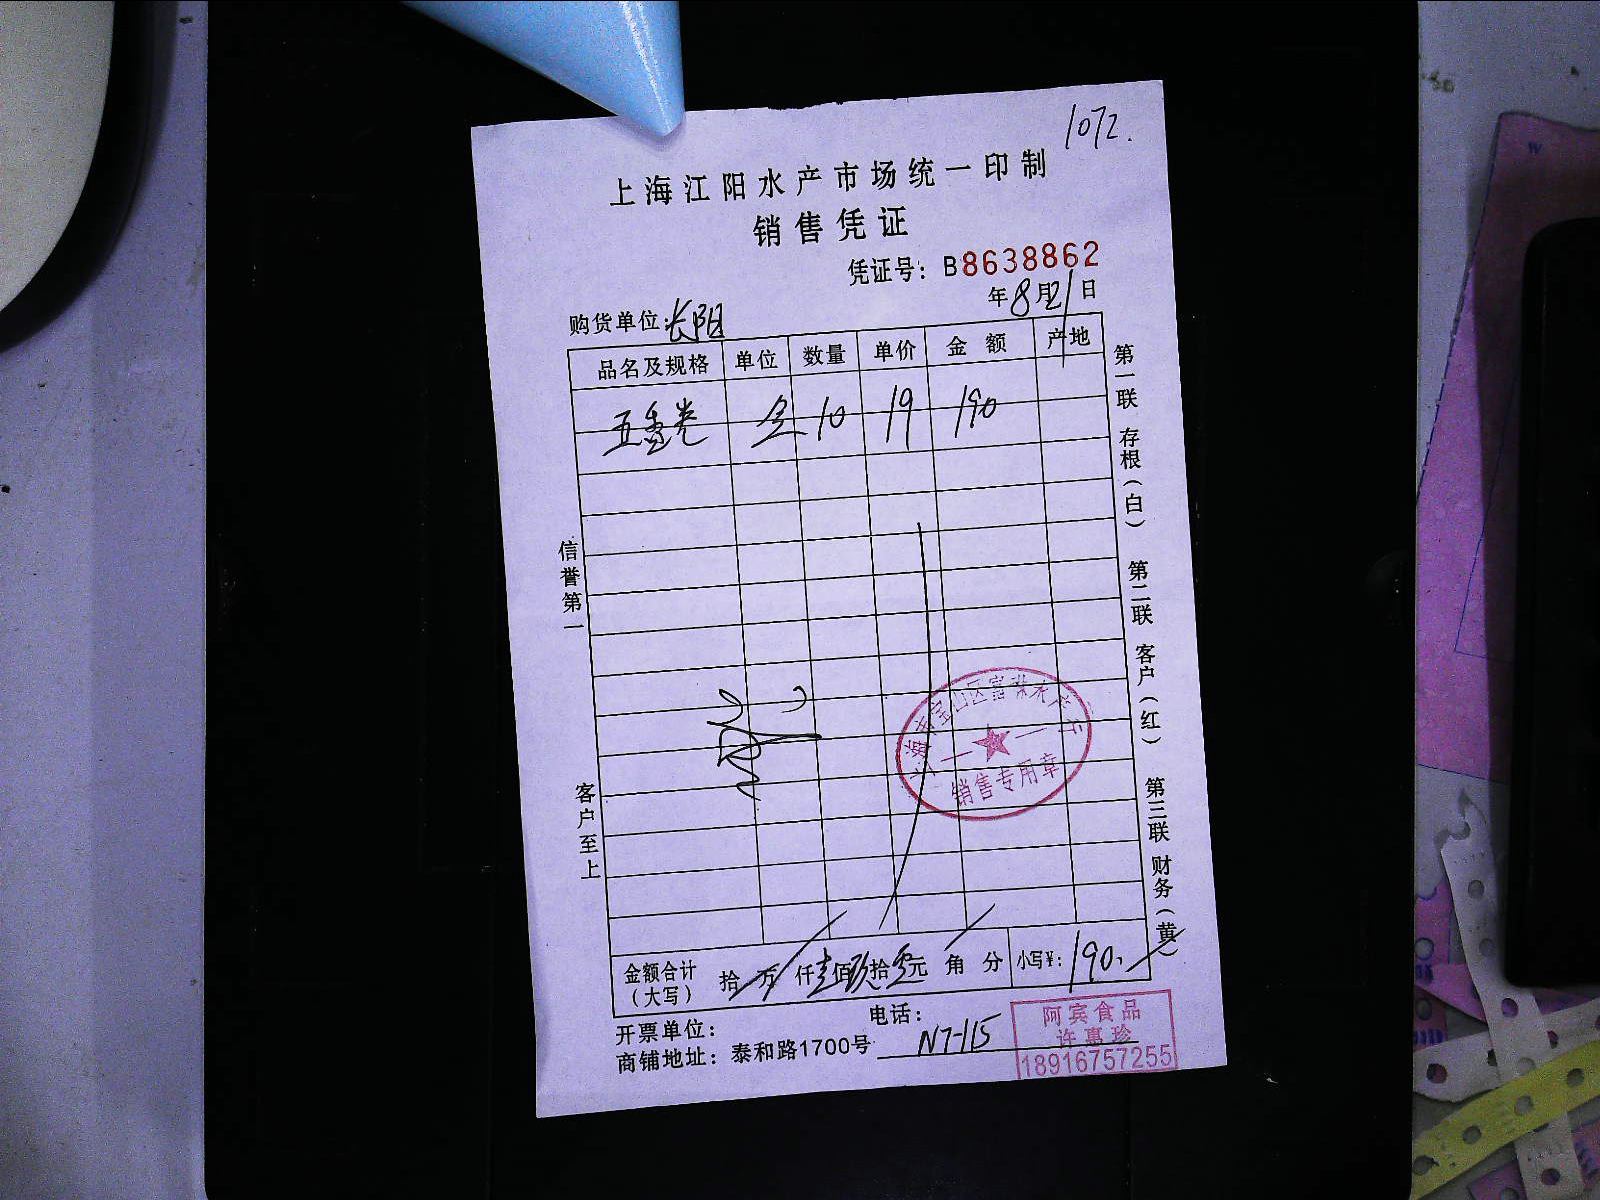 1072.
上海江阳水产市场统一印制
销售凭证
凭证号：B8638862
年8月21日
购货单位：长阳
品名及规格 单位 数量 单价 金额 产地
五香 10 19 190
信誉第一
客户至上
第一联 存根（白） 第二联 客户（红） 第三联 财务（黄）
上海市宝山区富洪水产行
销售专用章
金额合计（大写） 拾 万 仟壹佰玖拾零元 角 分 小写¥：190
开票单位： 电话：
商铺地址：泰和路1700号 N7-115
阿宾食品
许惠珍
18916757255